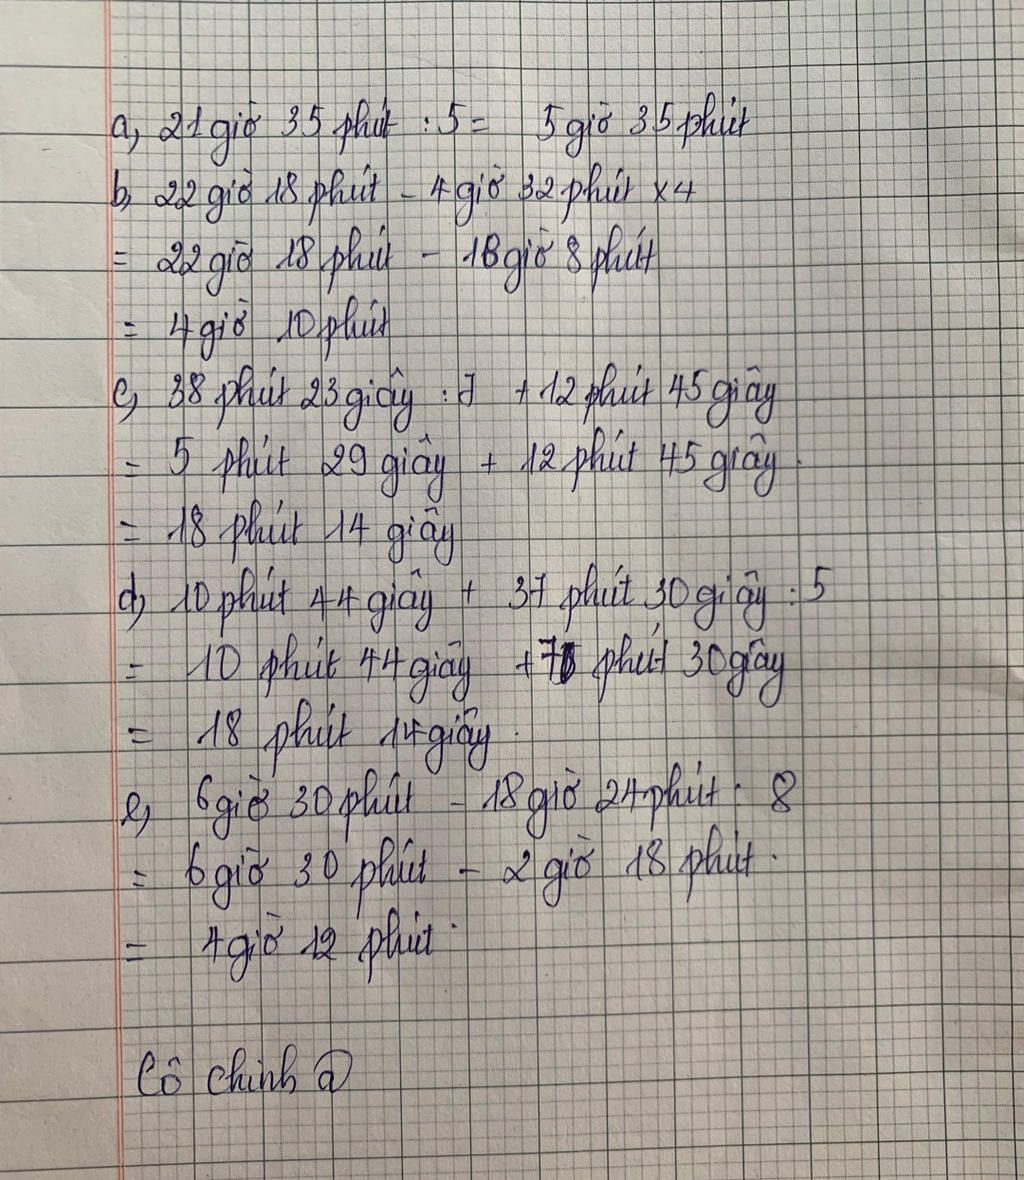 a, 21 giờ 35 phút : 5 = 5 giờ 35 phút
b, 22 giờ 18 phút - 4 giờ 32 phút x 4
= 22 giờ 18 phút - 18 giờ 8 phút
= 4 giờ 10 phút
c, 38 phút 23 giây : 7 + 12 phút 45 giây
= 5 phút 29 giây + 12 phút 45 giây.
= 18 phút 14 giây
d, 10 phút 44 giây + 37 phút 30 giây : 5
= 10 phút 44 giây + 7 phút 30 giây
= 18 phút 14 giây.
e, 6 giờ 30 phút - 18 giờ 24 phút : 8
= 6 giờ 30 phút - 2 giờ 18 phút.
= 4 giờ 12 phút.
Cô chinh a